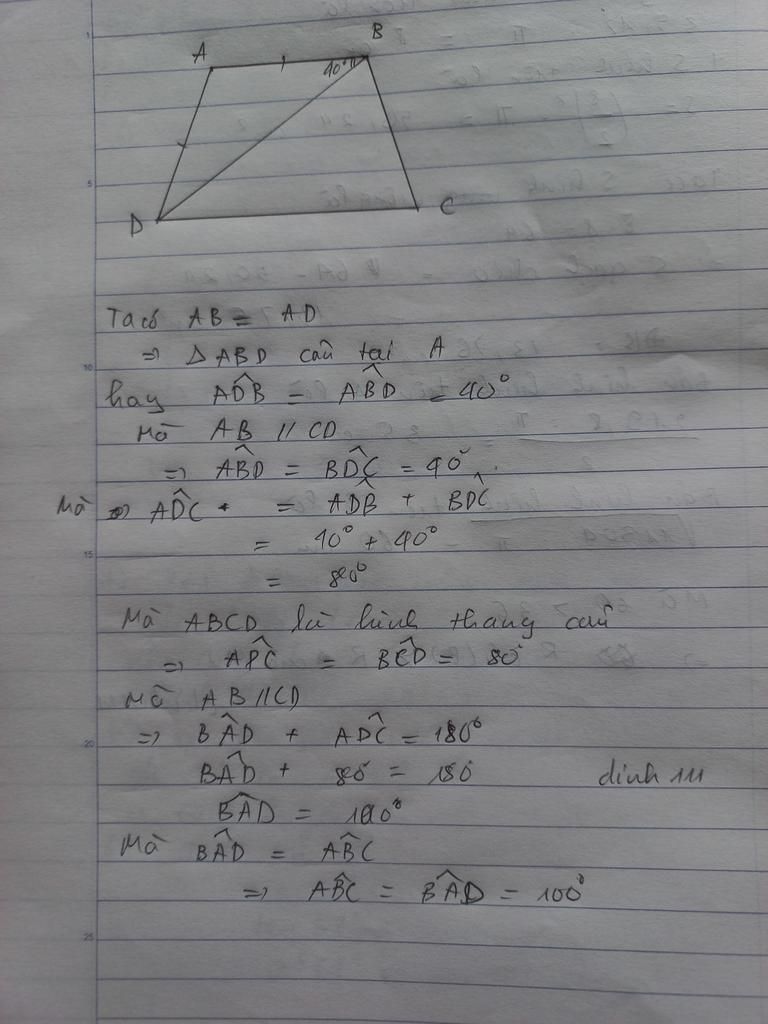 A
B
40°
D
C
Ta có AB = AD
=> Δ ABD cân tại A
hay ADB̂ = ABD̂ = 40°
Mà AB // CD
=> ABD̂ = BDĈ = 40°
Mà => ADĈ = ADB̂ + BDĈ
= 40° + 40°
= 80°
Mà ABCD là hình thang cân
=> ADĈ = BCD̂ = 80°
Mà AB // CD
=> BAD̂ + ADĈ = 180°
BAD̂ + 80° = 180
BAD̂ = 100°
Mà BAD̂ = ABĈ
=> ABĈ = BAD̂ = 100°